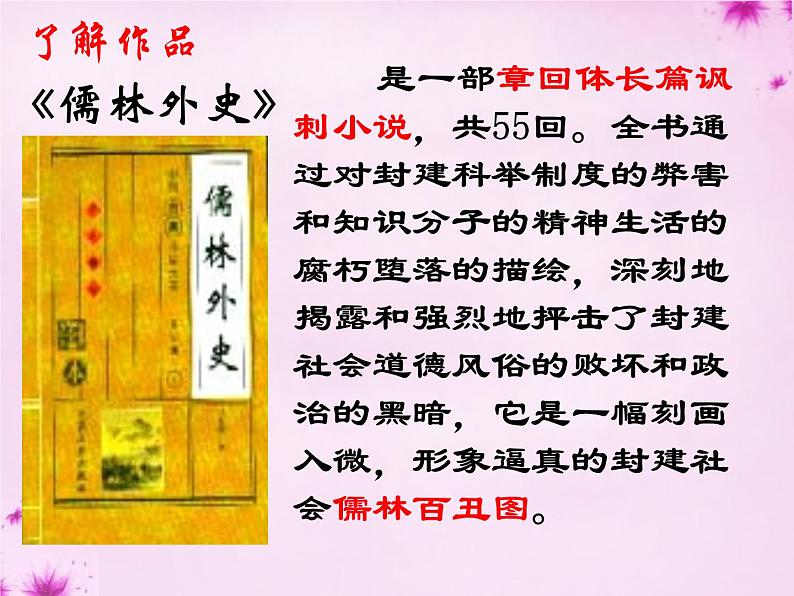 了解作品
《儒林外史》
是一部章回体长篇讽
刺小说，共55回。全书通
过对封建科举制度的弊害
和知识分子的精神生活的
腐朽堕落的描绘，深刻地
揭露和强烈地抨击了封建
社会道德风俗的败坏和政
治的黑暗，它是一幅刻画
入微，形象逼真的封建社
会儒林百丑图。
儒林外史